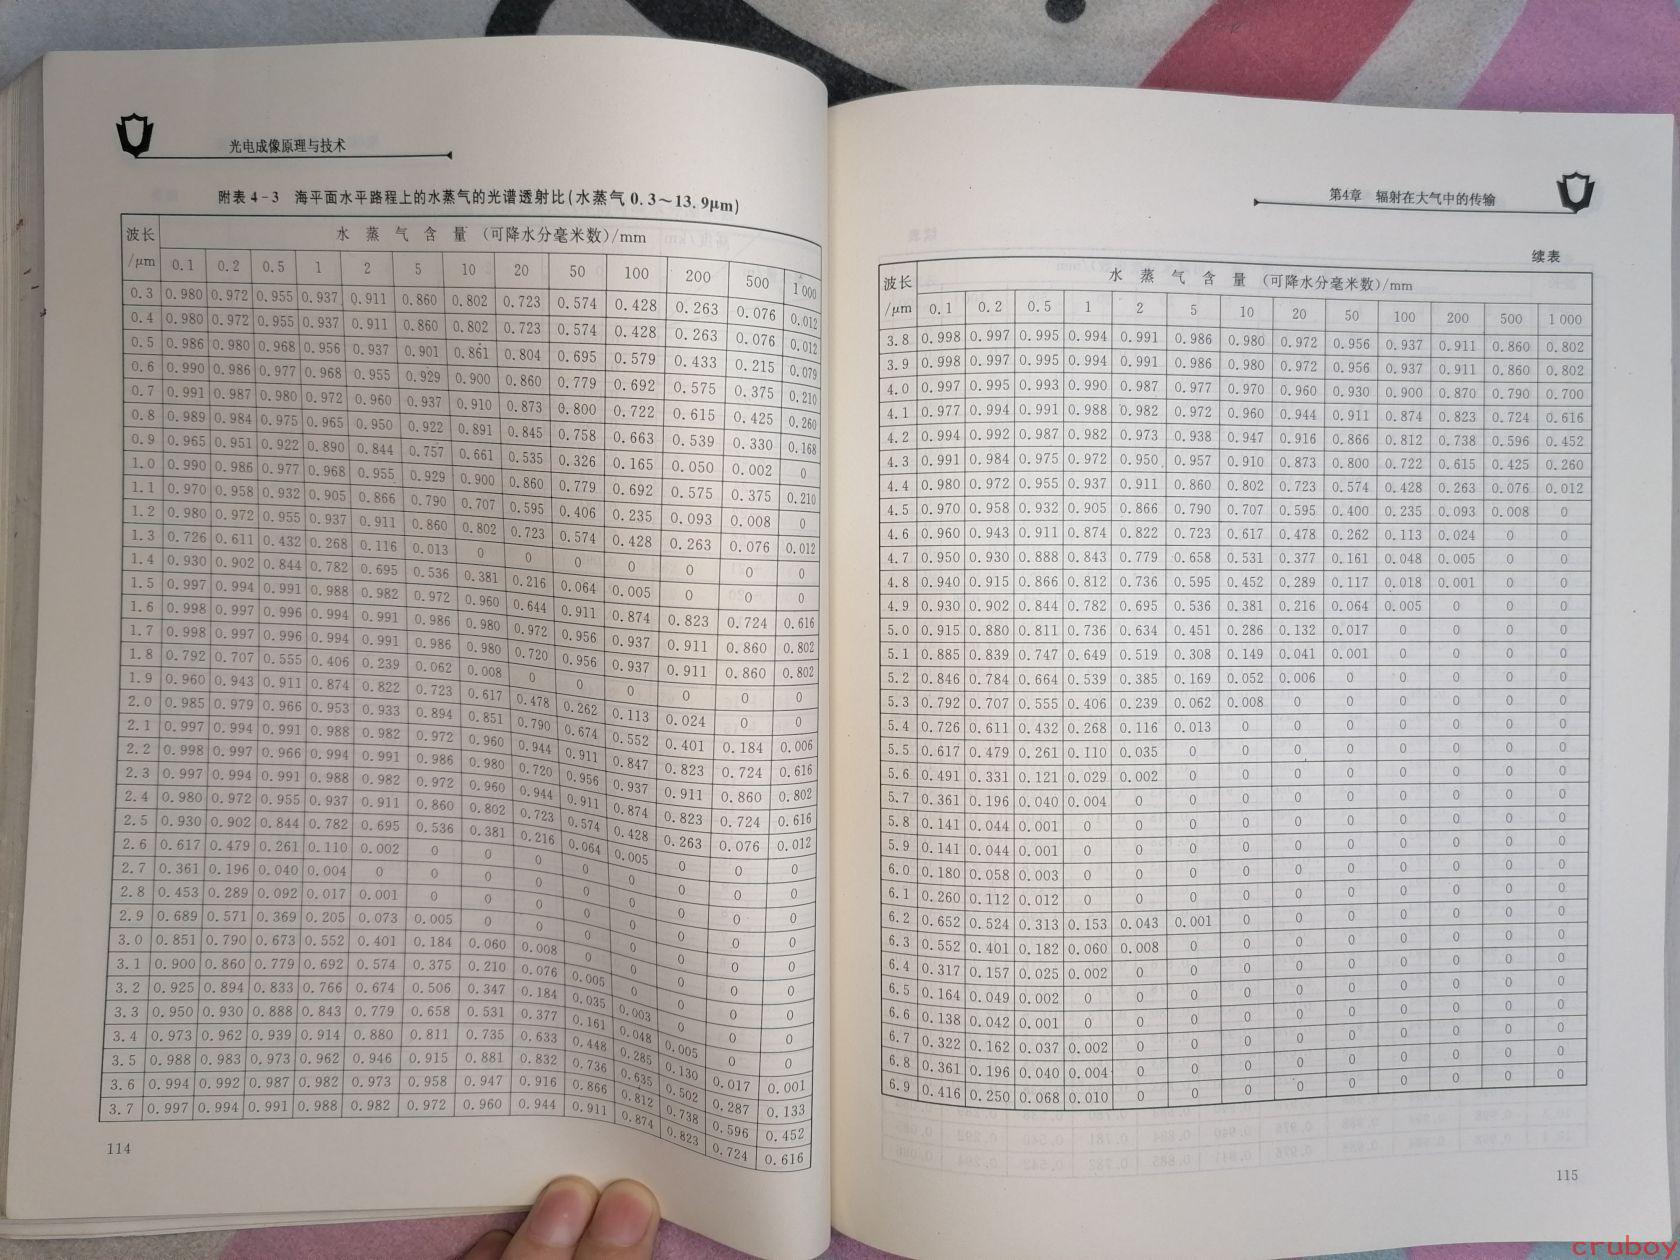 光电成像原理与技术
附表 4-3 海平面水平路程上的水蒸气的光谱透射比(水蒸气 0.3～13.9μm)
波长/μm 水蒸气含量(可降水分毫米数)/mm
0.1 0.2 0.5 1 2 5 10 20 50 100 200 500 1 000
0.3 0.980 0.972 0.955 0.937 0.911 0.860 0.802 0.723 0.574 0.428 0.263 0.076 0.012
0.4 0.980 0.972 0.955 0.937 0.911 0.860 0.802 0.723 0.574 0.428 0.263 0.076 0.012
0.5 0.986 0.980 0.968 0.956 0.937 0.901 0.861 0.804 0.695 0.579 0.433 0.215 0.079
0.6 0.990 0.986 0.977 0.968 0.955 0.929 0.900 0.860 0.779 0.692 0.575 0.375 0.210
0.7 0.991 0.987 0.980 0.972 0.960 0.937 0.910 0.873 0.800 0.722 0.615 0.425 0.260
0.8 0.989 0.984 0.975 0.965 0.950 0.922 0.891 0.845 0.758 0.663 0.539 0.330 0.168
0.9 0.965 0.951 0.922 0.890 0.844 0.757 0.661 0.535 0.326 0.165 0.050 0.002 0
1.0 0.990 0.986 0.977 0.968 0.955 0.929 0.900 0.860 0.779 0.692 0.575 0.375 0.210
1.1 0.970 0.958 0.932 0.905 0.866 0.790 0.707 0.595 0.406 0.235 0.093 0.008 0
1.2 0.980 0.972 0.955 0.937 0.911 0.860 0.802 0.723 0.574 0.428 0.263 0.076 0.012
1.3 0.726 0.611 0.432 0.268 0.116 0.013 0 0 0 0 0 0 0
1.4 0.930 0.902 0.844 0.782 0.695 0.536 0.381 0.216 0.064 0.005 0 0 0
1.5 0.997 0.994 0.991 0.988 0.982 0.972 0.960 0.644 0.911 0.874 0.823 0.724 0.616
1.6 0.998 0.997 0.996 0.994 0.991 0.986 0.980 0.972 0.956 0.937 0.911 0.860 0.802
1.7 0.998 0.997 0.996 0.994 0.991 0.986 0.980 0.720 0.956 0.937 0.911 0.860 0.802
1.8 0.792 0.707 0.555 0.406 0.239 0.062 0.008 0 0 0 0 0 0
1.9 0.960 0.943 0.911 0.874 0.822 0.723 0.617 0.478 0.262 0.113 0.024 0 0
2.0 0.985 0.979 0.966 0.953 0.933 0.894 0.851 0.790 0.674 0.552 0.401 0.184 0.006
2.1 0.997 0.994 0.991 0.988 0.982 0.972 0.960 0.944 0.911 0.847 0.823 0.724 0.616
2.2 0.998 0.997 0.966 0.994 0.991 0.986 0.980 0.720 0.956 0.937 0.911 0.860 0.802
2.3 0.997 0.994 0.991 0.988 0.982 0.972 0.960 0.944 0.911 0.874 0.823 0.724 0.616
2.4 0.980 0.972 0.955 0.937 0.911 0.860 0.802 0.723 0.574 0.428 0.263 0.076 0.012
2.5 0.930 0.902 0.844 0.782 0.695 0.536 0.381 0.216 0.064 0.005 0 0 0
2.6 0.617 0.479 0.261 0.110 0.002 0 0 0 0 0 0 0 0
2.7 0.361 0.196 0.040 0.004 0 0 0 0 0 0 0 0 0
2.8 0.453 0.289 0.092 0.017 0.001 0 0 0 0 0 0 0 0
2.9 0.689 0.571 0.369 0.205 0.073 0.005 0 0 0 0 0 0 0
3.0 0.851 0.790 0.673 0.552 0.401 0.184 0.060 0.008 0 0 0 0 0
3.1 0.900 0.860 0.779 0.692 0.574 0.375 0.210 0.076 0.005 0 0 0 0
3.2 0.925 0.894 0.833 0.766 0.674 0.506 0.347 0.184 0.035 0.003 0 0 0
3.3 0.950 0.930 0.888 0.843 0.779 0.658 0.531 0.377 0.161 0.048 0.005 0 0
3.4 0.973 0.962 0.939 0.914 0.880 0.811 0.735 0.633 0.448 0.285 0.130 0.017 0.001
3.5 0.988 0.983 0.973 0.962 0.946 0.915 0.881 0.832 0.736 0.635 0.502 0.287 0.133
3.6 0.994 0.992 0.987 0.982 0.973 0.958 0.947 0.916 0.866 0.812 0.738 0.596 0.452
3.7 0.997 0.994 0.991 0.988 0.982 0.972 0.960 0.944 0.911 0.874 0.823 0.724 0.616
114
第4章 辐射在大气中的传输
续表
波长/μm 水蒸气含量(可降水分毫米数)/mm
0.1 0.2 0.5 1 2 5 10 20 50 100 200 500 1 000
3.8 0.998 0.997 0.995 0.994 0.991 0.986 0.980 0.972 0.956 0.937 0.911 0.860 0.802
3.9 0.998 0.997 0.995 0.994 0.991 0.986 0.980 0.972 0.956 0.937 0.911 0.860 0.802
4.0 0.997 0.995 0.993 0.990 0.987 0.977 0.970 0.960 0.930 0.900 0.870 0.790 0.700
4.1 0.977 0.994 0.991 0.988 0.982 0.972 0.960 0.944 0.911 0.874 0.823 0.724 0.616
4.2 0.994 0.992 0.987 0.982 0.973 0.938 0.947 0.916 0.866 0.812 0.738 0.596 0.452
4.3 0.991 0.984 0.975 0.972 0.950 0.957 0.910 0.873 0.800 0.722 0.615 0.425 0.260
4.4 0.980 0.972 0.955 0.937 0.911 0.860 0.802 0.723 0.574 0.428 0.263 0.076 0.012
4.5 0.970 0.958 0.932 0.905 0.866 0.790 0.707 0.595 0.400 0.235 0.093 0.008 0
4.6 0.960 0.943 0.911 0.874 0.822 0.723 0.617 0.478 0.262 0.113 0.024 0 0
4.7 0.950 0.930 0.888 0.843 0.779 0.658 0.531 0.377 0.161 0.048 0.005 0 0
4.8 0.940 0.915 0.866 0.812 0.736 0.595 0.452 0.289 0.117 0.018 0.001 0 0
4.9 0.930 0.902 0.844 0.782 0.695 0.536 0.381 0.216 0.064 0.005 0 0 0
5.0 0.915 0.880 0.811 0.736 0.634 0.451 0.286 0.132 0.017 0 0 0 0
5.1 0.885 0.839 0.747 0.649 0.519 0.308 0.149 0.041 0.001 0 0 0 0
5.2 0.846 0.784 0.664 0.539 0.385 0.169 0.052 0.006 0 0 0 0 0
5.3 0.792 0.707 0.555 0.406 0.239 0.062 0.008 0 0 0 0 0 0
5.4 0.726 0.611 0.432 0.268 0.116 0.013 0 0 0 0 0 0 0
5.5 0.617 0.479 0.261 0.110 0.035 0 0 0 0 0 0 0 0
5.6 0.491 0.331 0.121 0.029 0.002 0 0 0 0 0 0 0 0
5.7 0.361 0.196 0.040 0.004 0 0 0 0 0 0 0 0 0
5.8 0.141 0.044 0.001 0 0 0 0 0 0 0 0 0 0
5.9 0.141 0.044 0.001 0 0 0 0 0 0 0 0 0 0
6.0 0.180 0.058 0.003 0 0 0 0 0 0 0 0 0 0
6.1 0.260 0.112 0.012 0 0 0 0 0 0 0 0 0 0
6.2 0.652 0.524 0.313 0.153 0.043 0.001 0 0 0 0 0 0 0
6.3 0.552 0.401 0.182 0.060 0.008 0 0 0 0 0 0 0 0
6.4 0.317 0.157 0.025 0.002 0 0 0 0 0 0 0 0 0
6.5 0.164 0.049 0.002 0 0 0 0 0 0 0 0 0 0
6.6 0.138 0.042 0.001 0 0 0 0 0 0 0 0 0 0
6.7 0.322 0.162 0.037 0.002 0 0 0 0 0 0 0 0 0
6.8 0.361 0.196 0.040 0.004 0 0 0 0 0 0 0 0 0
6.9 0.416 0.250 0.068 0.010 0 0 0 0 0 0 0 0 0
115
cruboy